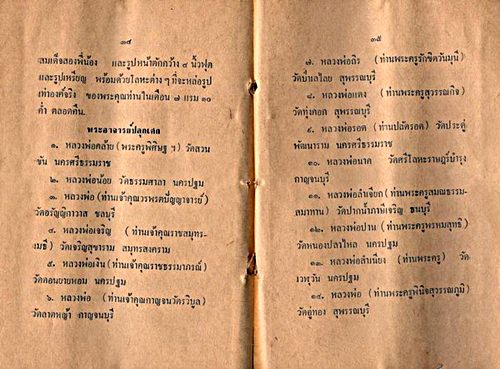 ๑๔
สมเด็จสองพี่น้อง และรูปหน้าตักกว้าง ๙ นิ้วฟุต
และรูปเหรียญ พร้อมด้วยโลหะต่าง ๆ ที่จะหล่อรูป
เท่าองค์จริง ของพระคุณท่านในเดือน ๗ แรม ๑๐
ค่ำ ตลอดคืน.
พระอาจารย์ปลุกเสก
๑. หลวงพ่อคล้าย (พระครูพิศิษฐ ฯ) วัดสวน
ขัน นครศรีธรรมราช
๒. หลวงพ่อน้อย วัดธรรมศาลา นครปฐม
๓. หลวงพ่อ (ท่านเจ้าคุณวรพรตปัญญาจารย์)
วัดอรัญญิกาวาส ชลบุรี
๔. หลวงพ่อเจริญ (ท่านเจ้าคุณราชสมุทร-
เมธี) วัดเจริญสุขาราม สมุทรสงคราม
๕. หลวงพ่อเงิน (ท่านเจ้าคุณราชธรรมาภรณ์)
วัดดอนยายหอม นครปฐม
๖. หลวงพ่อ (ท่านเจ้าคุณกาญจนวัตรวิบูล)
วัดลาดหญ้า กาญจนบุรี
๑๕
๗. หลวงพ่อถิร (ท่านพระครูรักขิตวันมุนี)
วัดป่าเลไลย สุพรรณบุรี
๘. หลวงพ่อแตง (ท่านพระครูสุวรรณกิจ)
วัดทุ่งคอก สุพรรณบุรี
๙. หลวงพ่อรอด (ท่านปลัดรอด) วัดประดู่
พัฒนาราม นครศรีธรรมราช
๑๐. หลวงพ่อนาค วัดศรีโลหะราษฎร์บำรุง
กาญจนบุรี
๑๑. หลวงพ่อลำเจียก (ท่านพระครูสมณธรรม-
สมาทาน) วัดปากน้ำภาษีเจริญ ธนบุรี
๑๒. หลวงพ่อปาน (ท่านพระครูพรหมสุทธิ์)
วัดหนองปลาไหล นครปฐม
๑๓. หลวงพ่อลำเนียง (ท่านพระครู) วัด
เวฬุวัน นครปฐม
๑๔. หลวงพ่อ (ท่านพระครูพินิจสุวรรณภูมิ)
วัดอู่ทอง สุพรรณบุรี